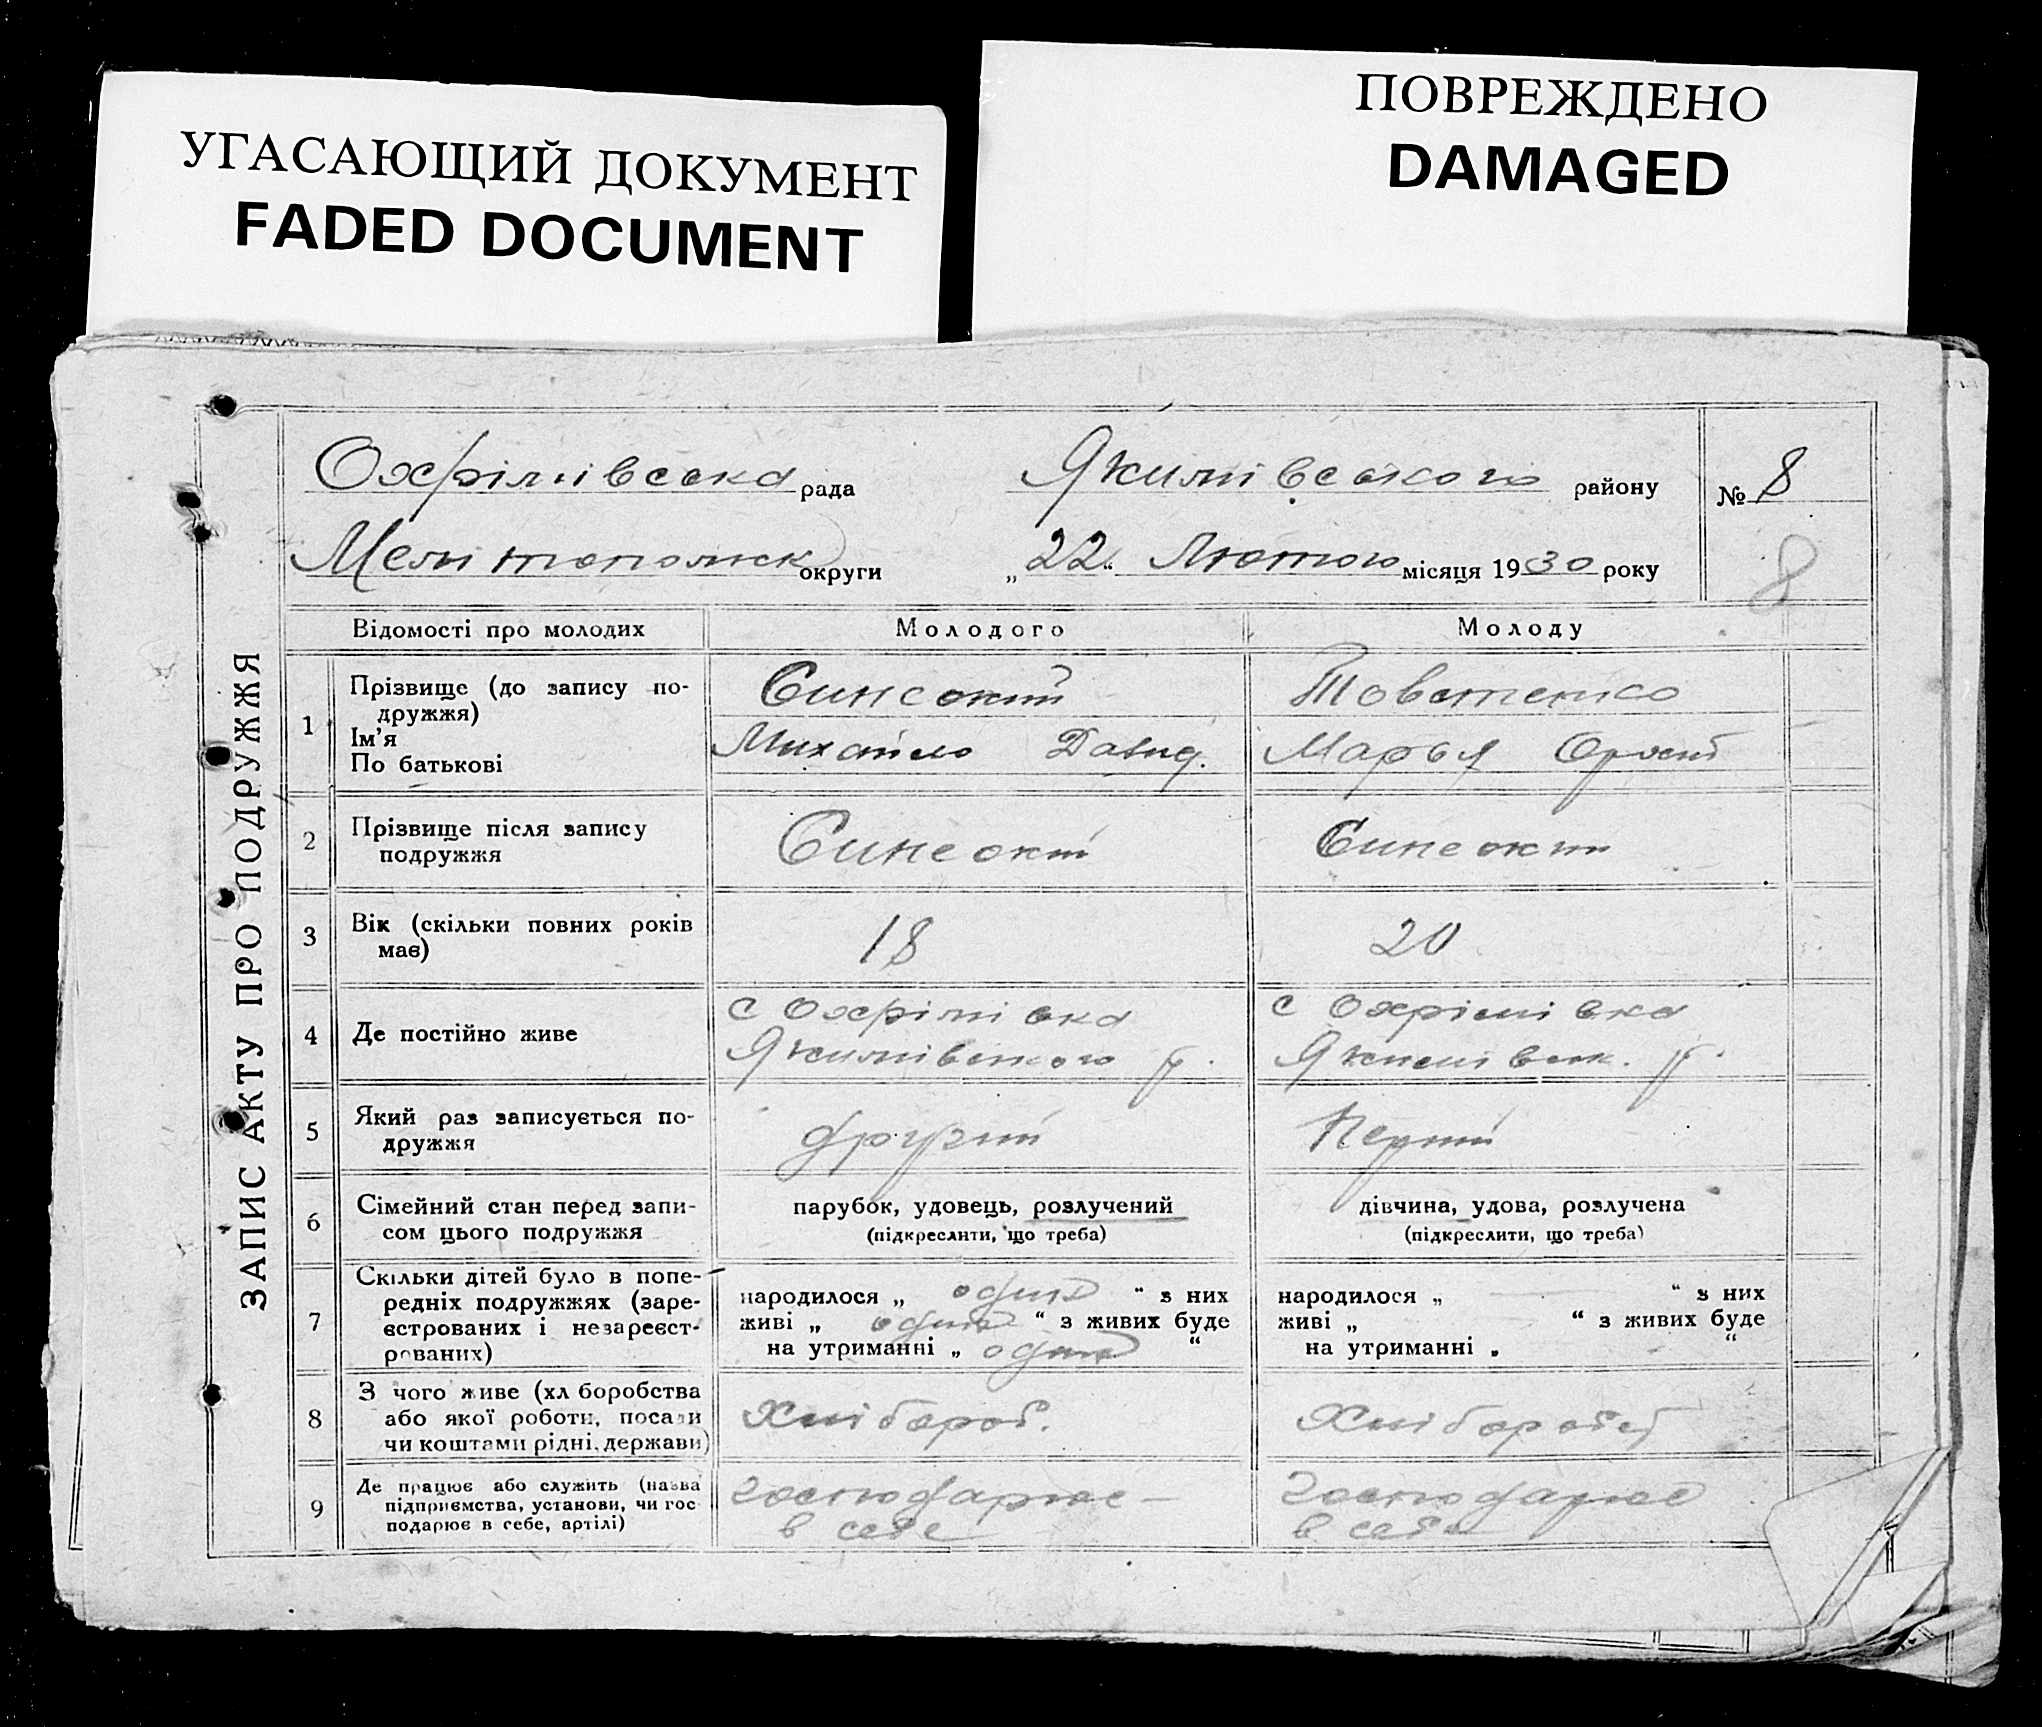 УГАСАЮЩИЙ ДОКУМЕНТ
FADED DOCUMENT
ПОВРЕЖДЕНО
DAMAGED
ЗАПИС АКТУ ПРО ПОДРУЖЖЯ
Охрімівська рада Якимівського району № 8
Мелитопольск округи „22“ Лютого місяця 1930 року
8
Відомості про молодих Молодого Молоду
1 Прізвище (до запису по-
дружжя)
Ім'я
По батькові
Синеокий
Михайло Давид.
Товстенко
Марья
2 Прізвище після запису
подружжя
Синеокий
Синеокий
3 Вік (скільки повних років
має)
18
20
4 Де постійно живе
с Охрімівка
Якимівського р.
с Охрімівка
Якимівськ. р.
5 Який раз записується по-
дружжя
другий
Перший
6 Сімейний стан перед запи-
сом цього подружжя
парубок, удовець, розлучений
(підкреслити, що треба)
дівчина, удова, розлучена
(підкреслити, що треба)
7 Скільки дітей було в попе-
редніх подружжях (заре-
єстрованих і незареєст-
рованих)
народилося „ один “ з них
живі „ один “ з живих буде
на утриманні „ один “
народилося „ “ з них
живі „ “ з живих буде
на утриманні „ “
8 З чого живе (хліборобства
або якої роботи, посади
чи коштами рідні, держави)
Хлібороб.
9 Де працює або служить (назва
підприємства, установи, чи гос
подарює в себе, артілі)
господарює –
в себе
господарює
в себе